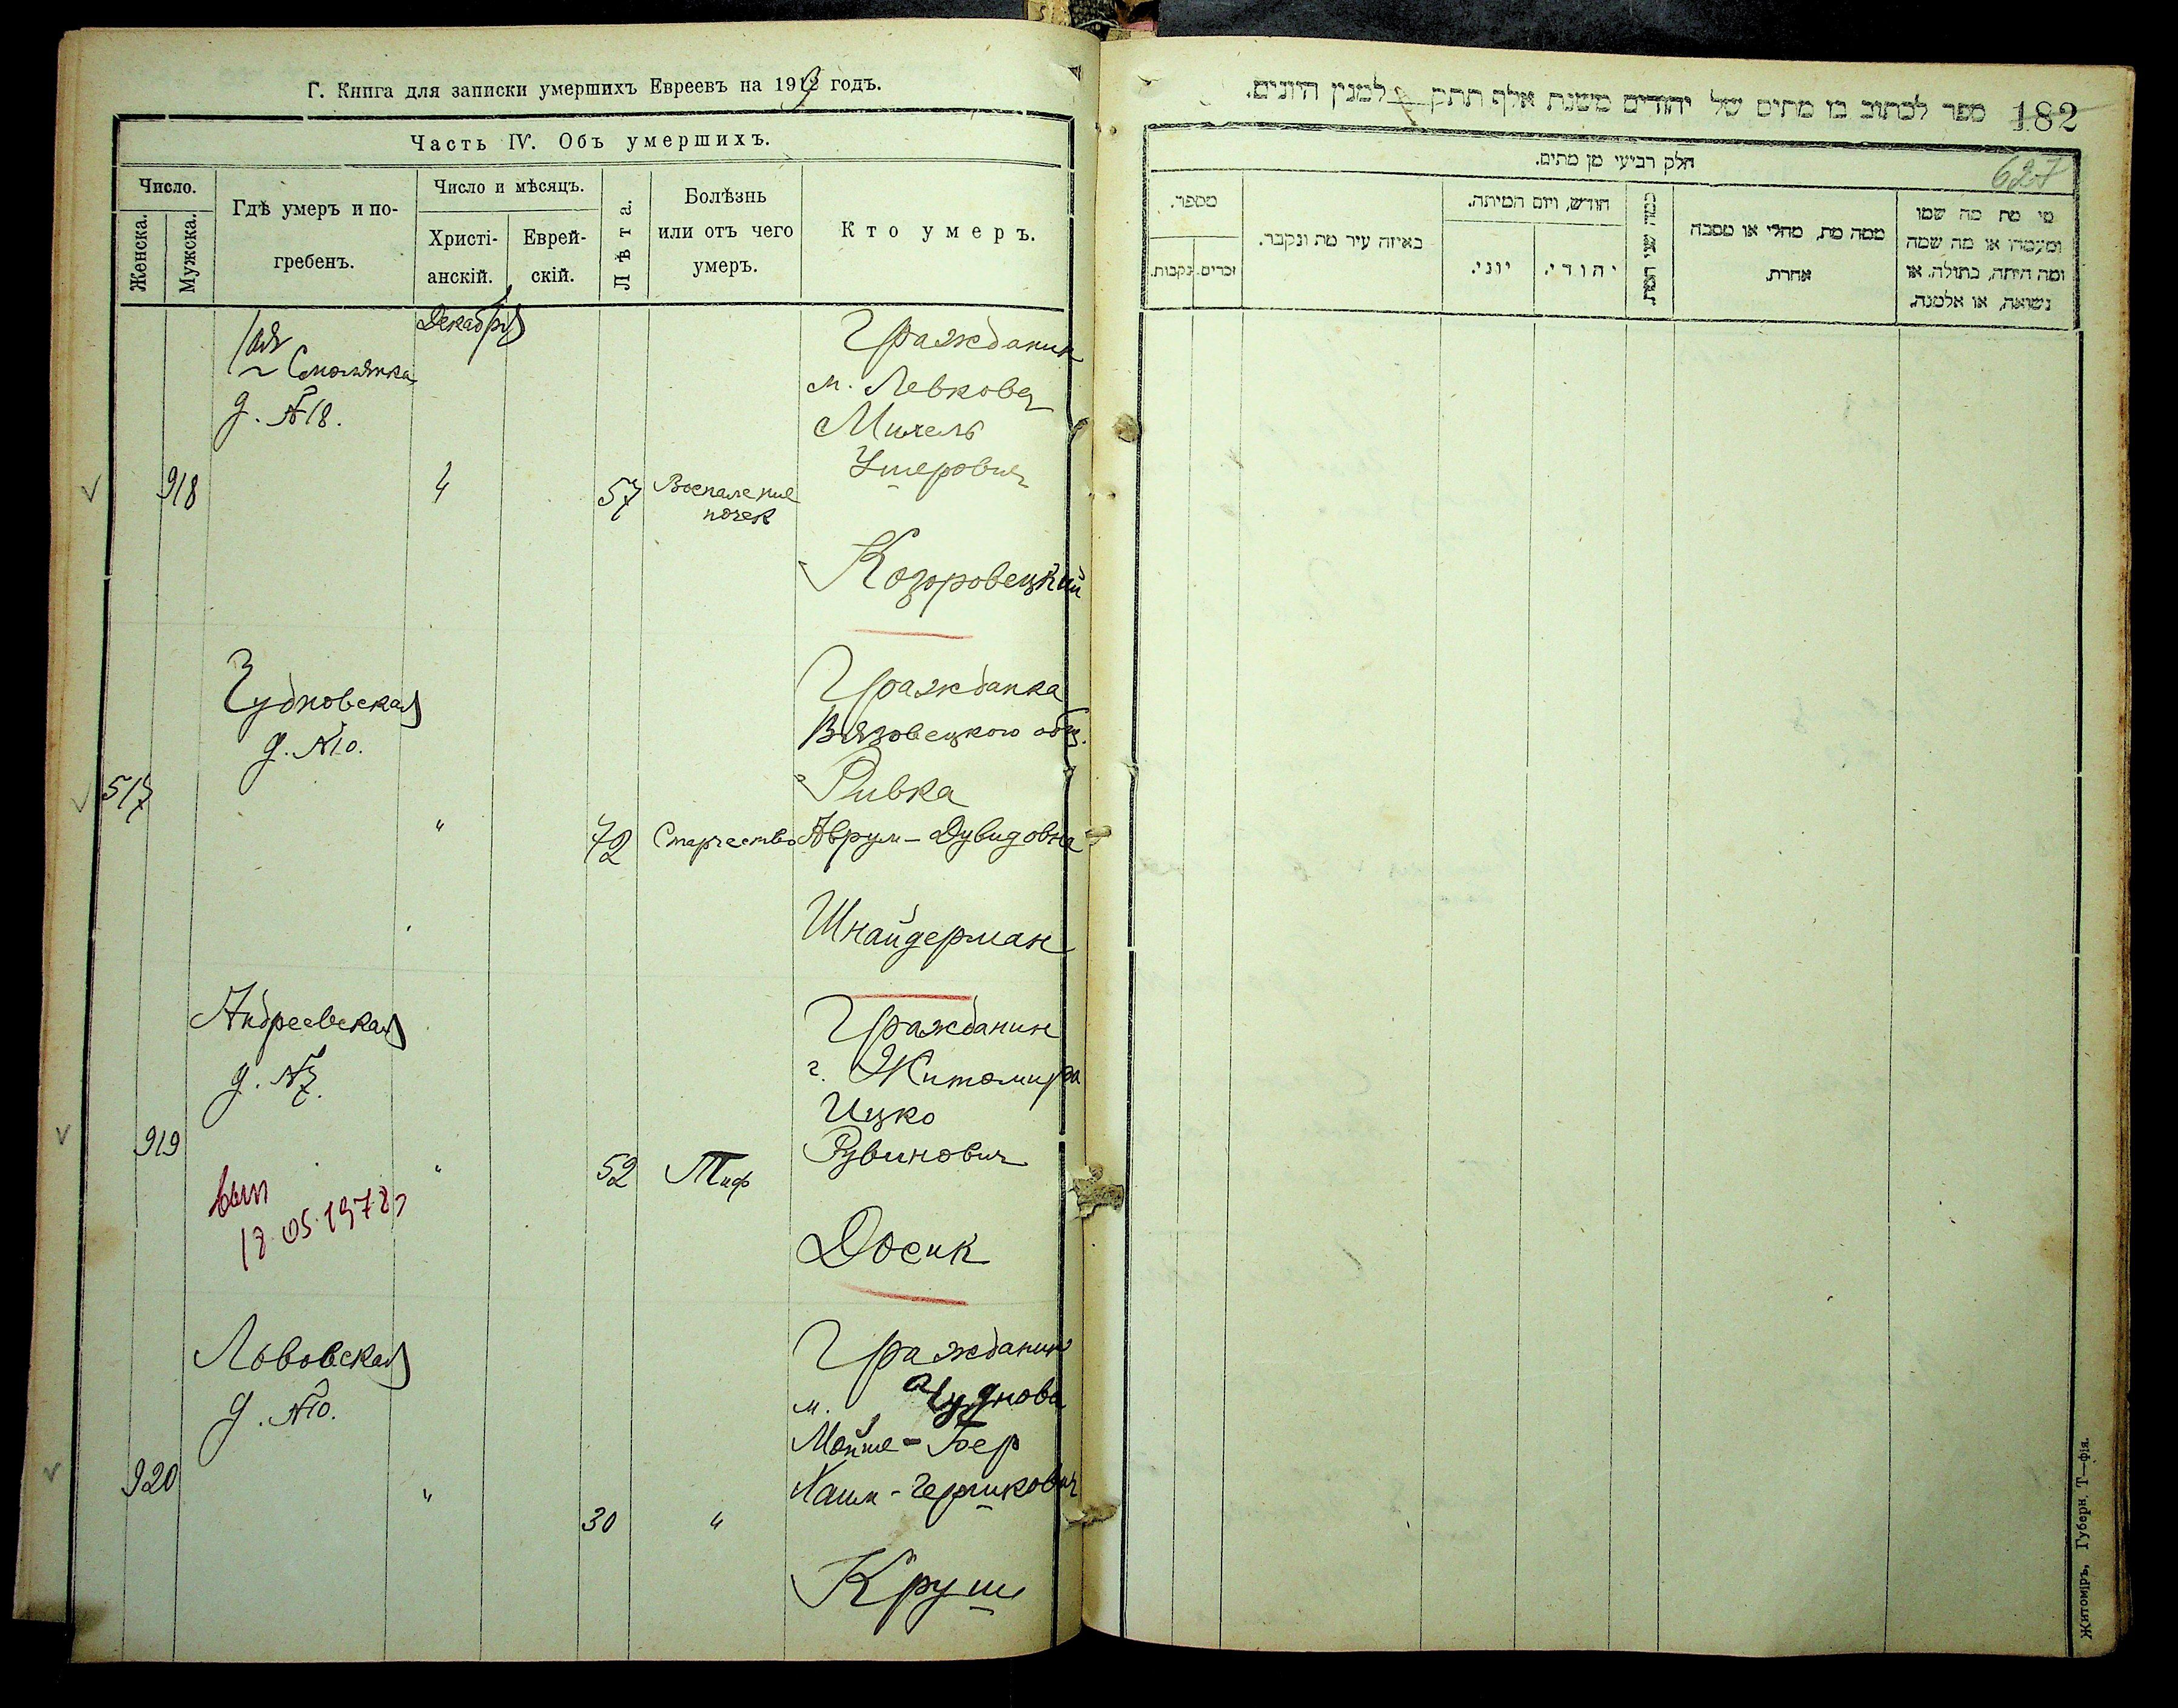 Г. Книга для записки умершихъ Евреевъ на 1919 годъ.
Часть IV. Объ умершихъ.
Число.
Женска.
Мужска.
Гдѣ умеръ и по-
гребенъ.
Число и мѣсяцъ.
Христі-
анскій.
Еврей-
скій.
Лѣта.
Болѣзнь
или отъ чего
умеръ.
Кто умеръ.
Декабря
1ая
Смолянка
д. №18.
918
4
57
Воспаление
почек
Гражданин
м. Левкова
Михель
Ушерович
Козоровецкий
Чудновская
д. №10.
517
"
72
Старчество
Гражданка
Вязовецкого общ.
Ривка
Аврум-Дувидовна
Шнайдерман
Андреевская
д. №7.
919
"
52
Тиф
Гражданин
г. Житомира
Ицко
Рувинович
Досик
18.05.1978
Львовская
д. №10.
920
"
30
"
Гражданин
м. Чуднова
Мойше-Бер
Хаим-Гершкович
Круш
ספר לכתוב בו מתים של יהודים משנת אלף תתק למנין היונים.
182
627
חלק רביעי מן מתים.
מספר.
נקבות.
זכרים.
באיזה עיר מת ונקבר.
חודש, ויום המיתה.
יוני.
יהודי.
כמה שני המת.
ממה מת, מחלי או מסבה
אחרת.
מי מת מה שמו
ומעמדו או מה שמה
ומה היתה, בתולה, או
נשואה, או אלמנה.
Житоміръ, Губерн. Т—фія.